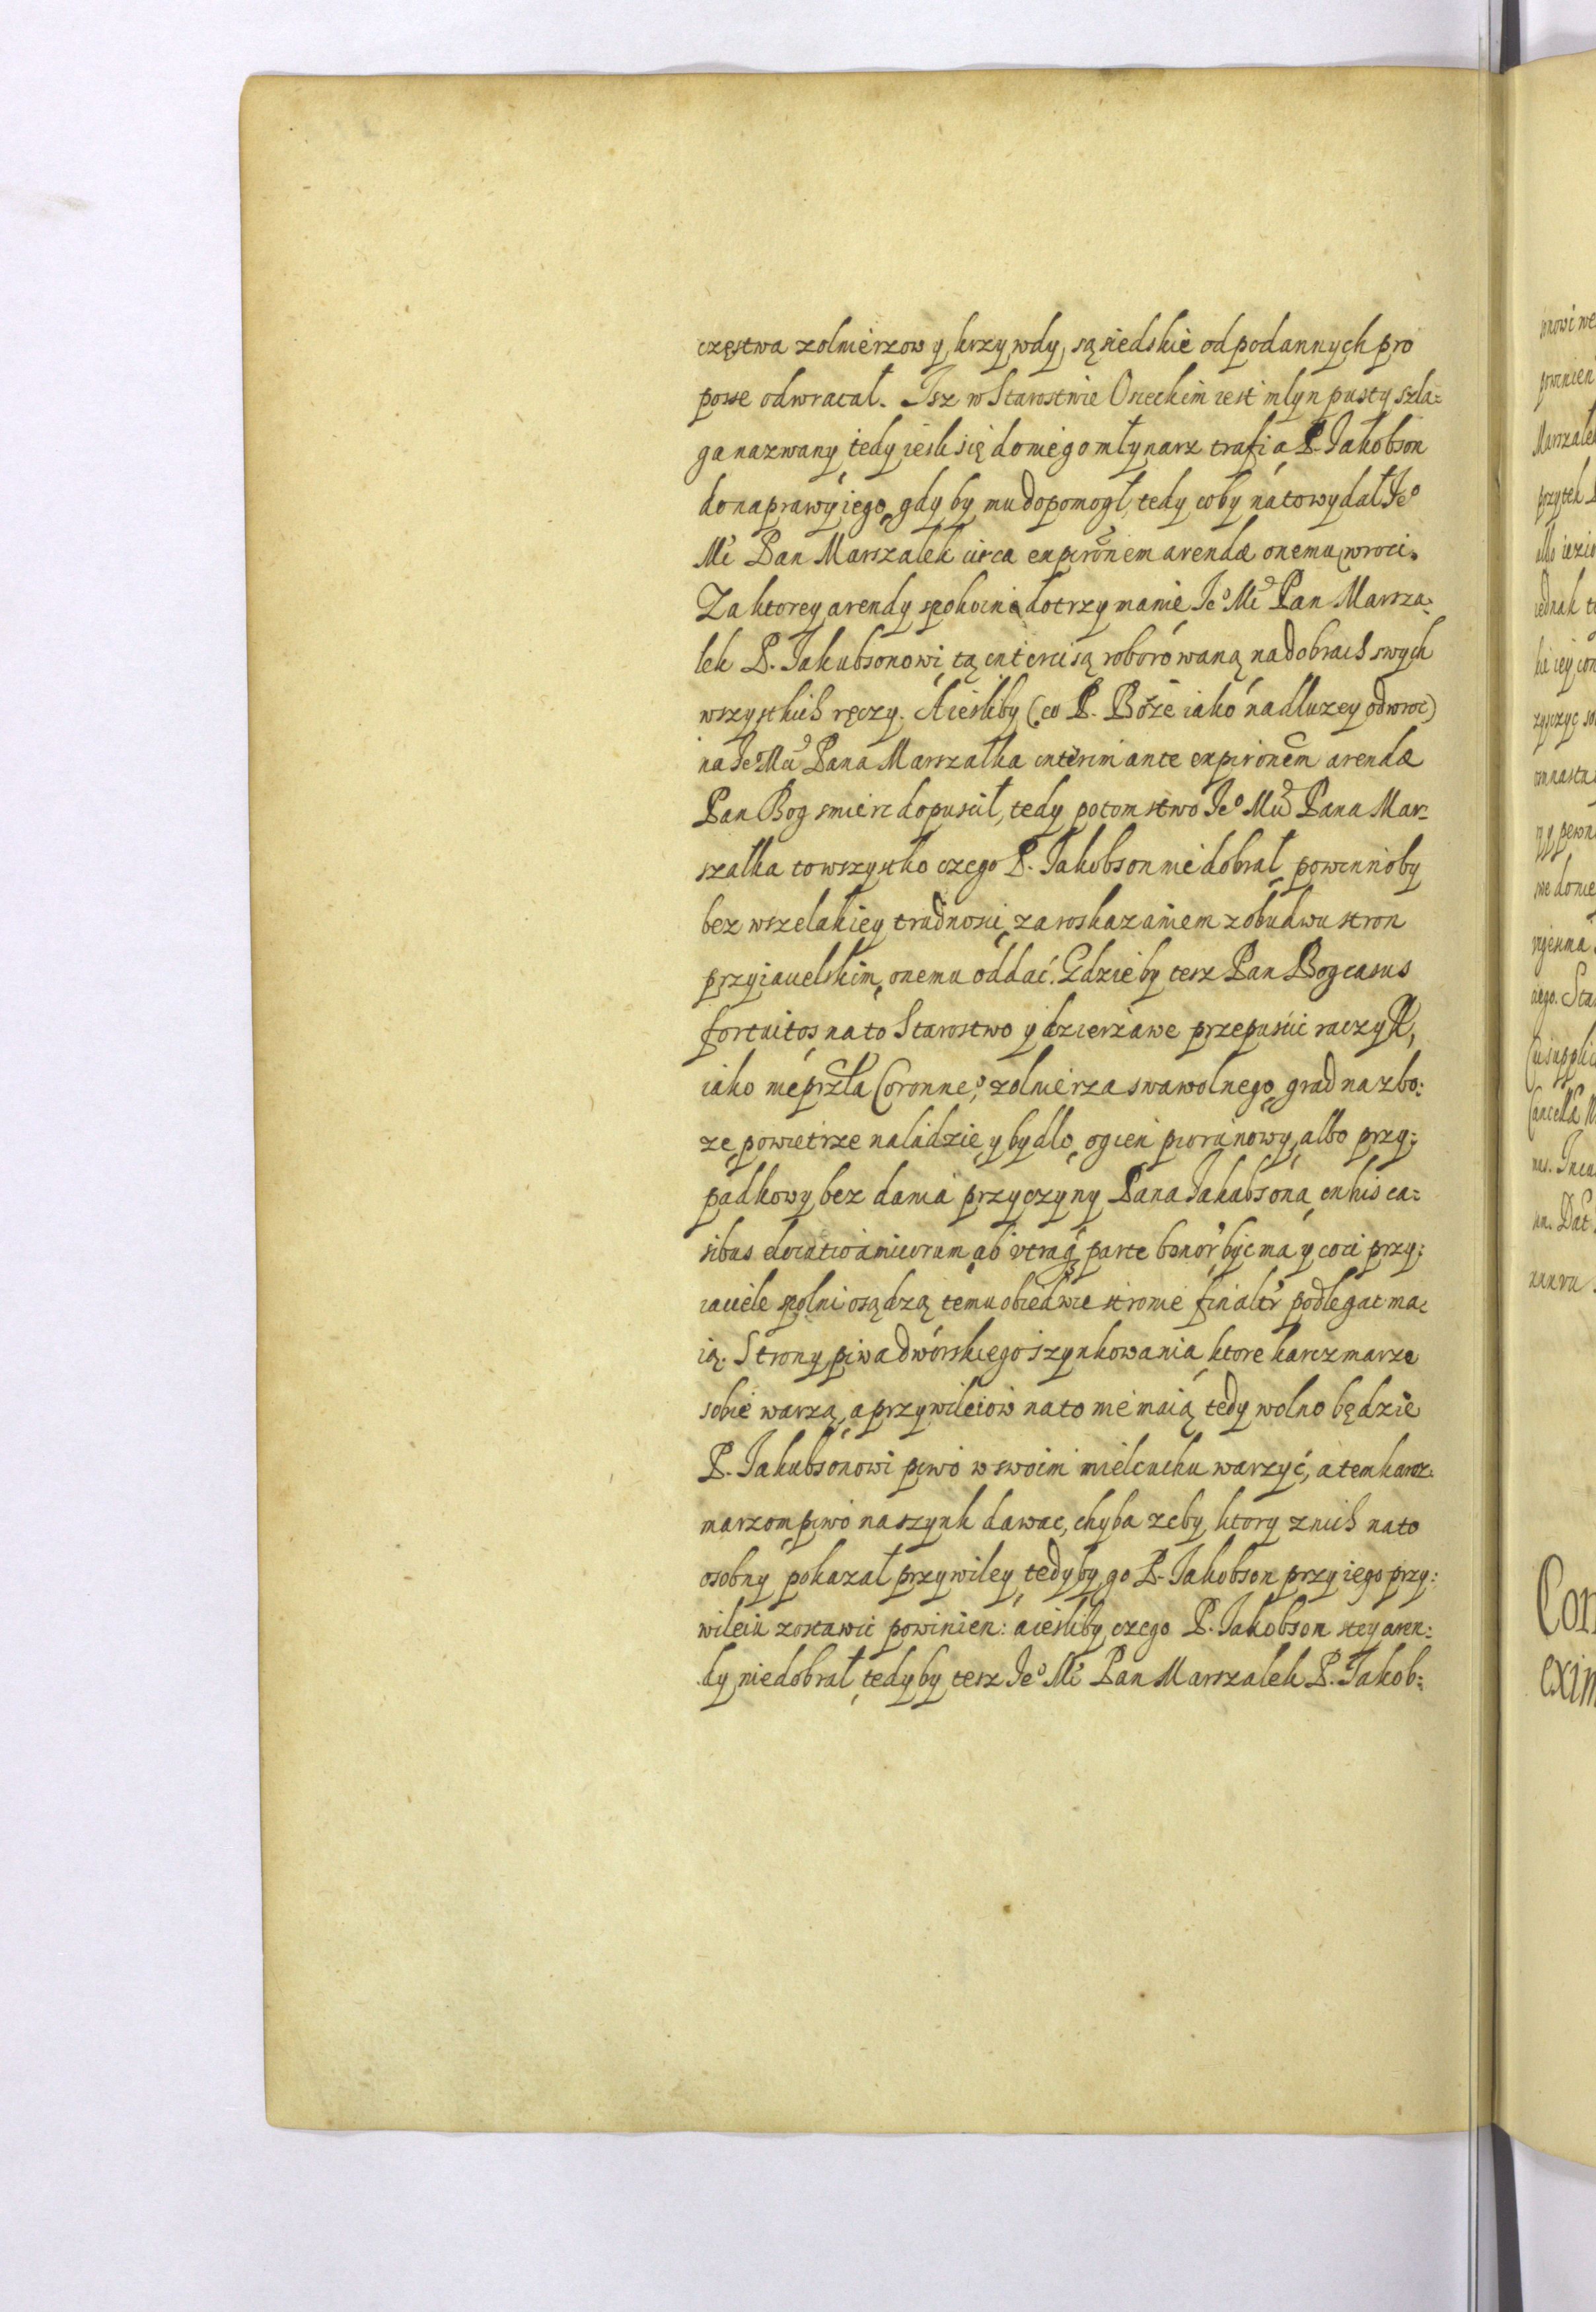 częstwa zolnierzow y krzywdy sąsiedskie od podannych pro
posse odwracał. Isz w Starostwie Oseckim iest młyn pusty szla-
ga nazwany tedy iesli się do niego młynarz trafi a P. Jakobson
do naprawy iego, gdy by mu dopomogł, tedy coby na to wydał Jeº
Mć Pan Marszalek circa expironem arendæ onemu wroci.
Za ktorey arendy spokoine dotrzymanie Jeº Mć Pan Marsza-
lek P. Jakubsonowi tą intercisą roborowaną na dobrach swych
wszystkich ręczy. A iesliby (co P. Boże iako nadluzey odwroc)
na Jeº Mci Pana Marszałka interim ante expironem arendæ
Pan Bog smierc dopuscił, tedy potomstwo Jeº Mci Pana Mar-
szałka to wszystko czego P. Jakobson nie dobrał powinnoby
bez wszelakiey trudnosci za roskazaniem z obudwu stron
przyiacielskim, onemu oddać. Gdzie by tesz Pan Bog casus
fortuitos na to Starostwo y dzierżawe przepuscic raczył,
iako nieprzła Coronneº, zolnierza swawolnego, grad na zbo-
ze, powietrze na ludzie y bydlo, ogien piorunowy, albo przy-
padkowy bez dania przyczyny Pana Jakubsona, in his ca-
sibus amicorum ab utraq parte bonor bydz ma y coci przy-
iaciele spolni osądzą temu obiedwie stronie finaltr podlegac ma-
ią. Strony piwa dworskiego szynkowania ktore karczmarze
sobie warzą, a przywileiow na to nie maią tedy wolno będzie
P. Jakubsonowi piwo w swoim mielcuchu warzyć, a tem karcz-
marzom piwo na szynk dawac, chyba zeby ktory z nich na to
osobny pokazał przywiley, tedyby go P. Jakobson przy iego przy-
wileiu zostawic powinien: a iesliby czego P. Jakobson s tey aren-
dy nie dobrał, tedyby tesz Jeº Mć Pan Marszalek P. Jakob-